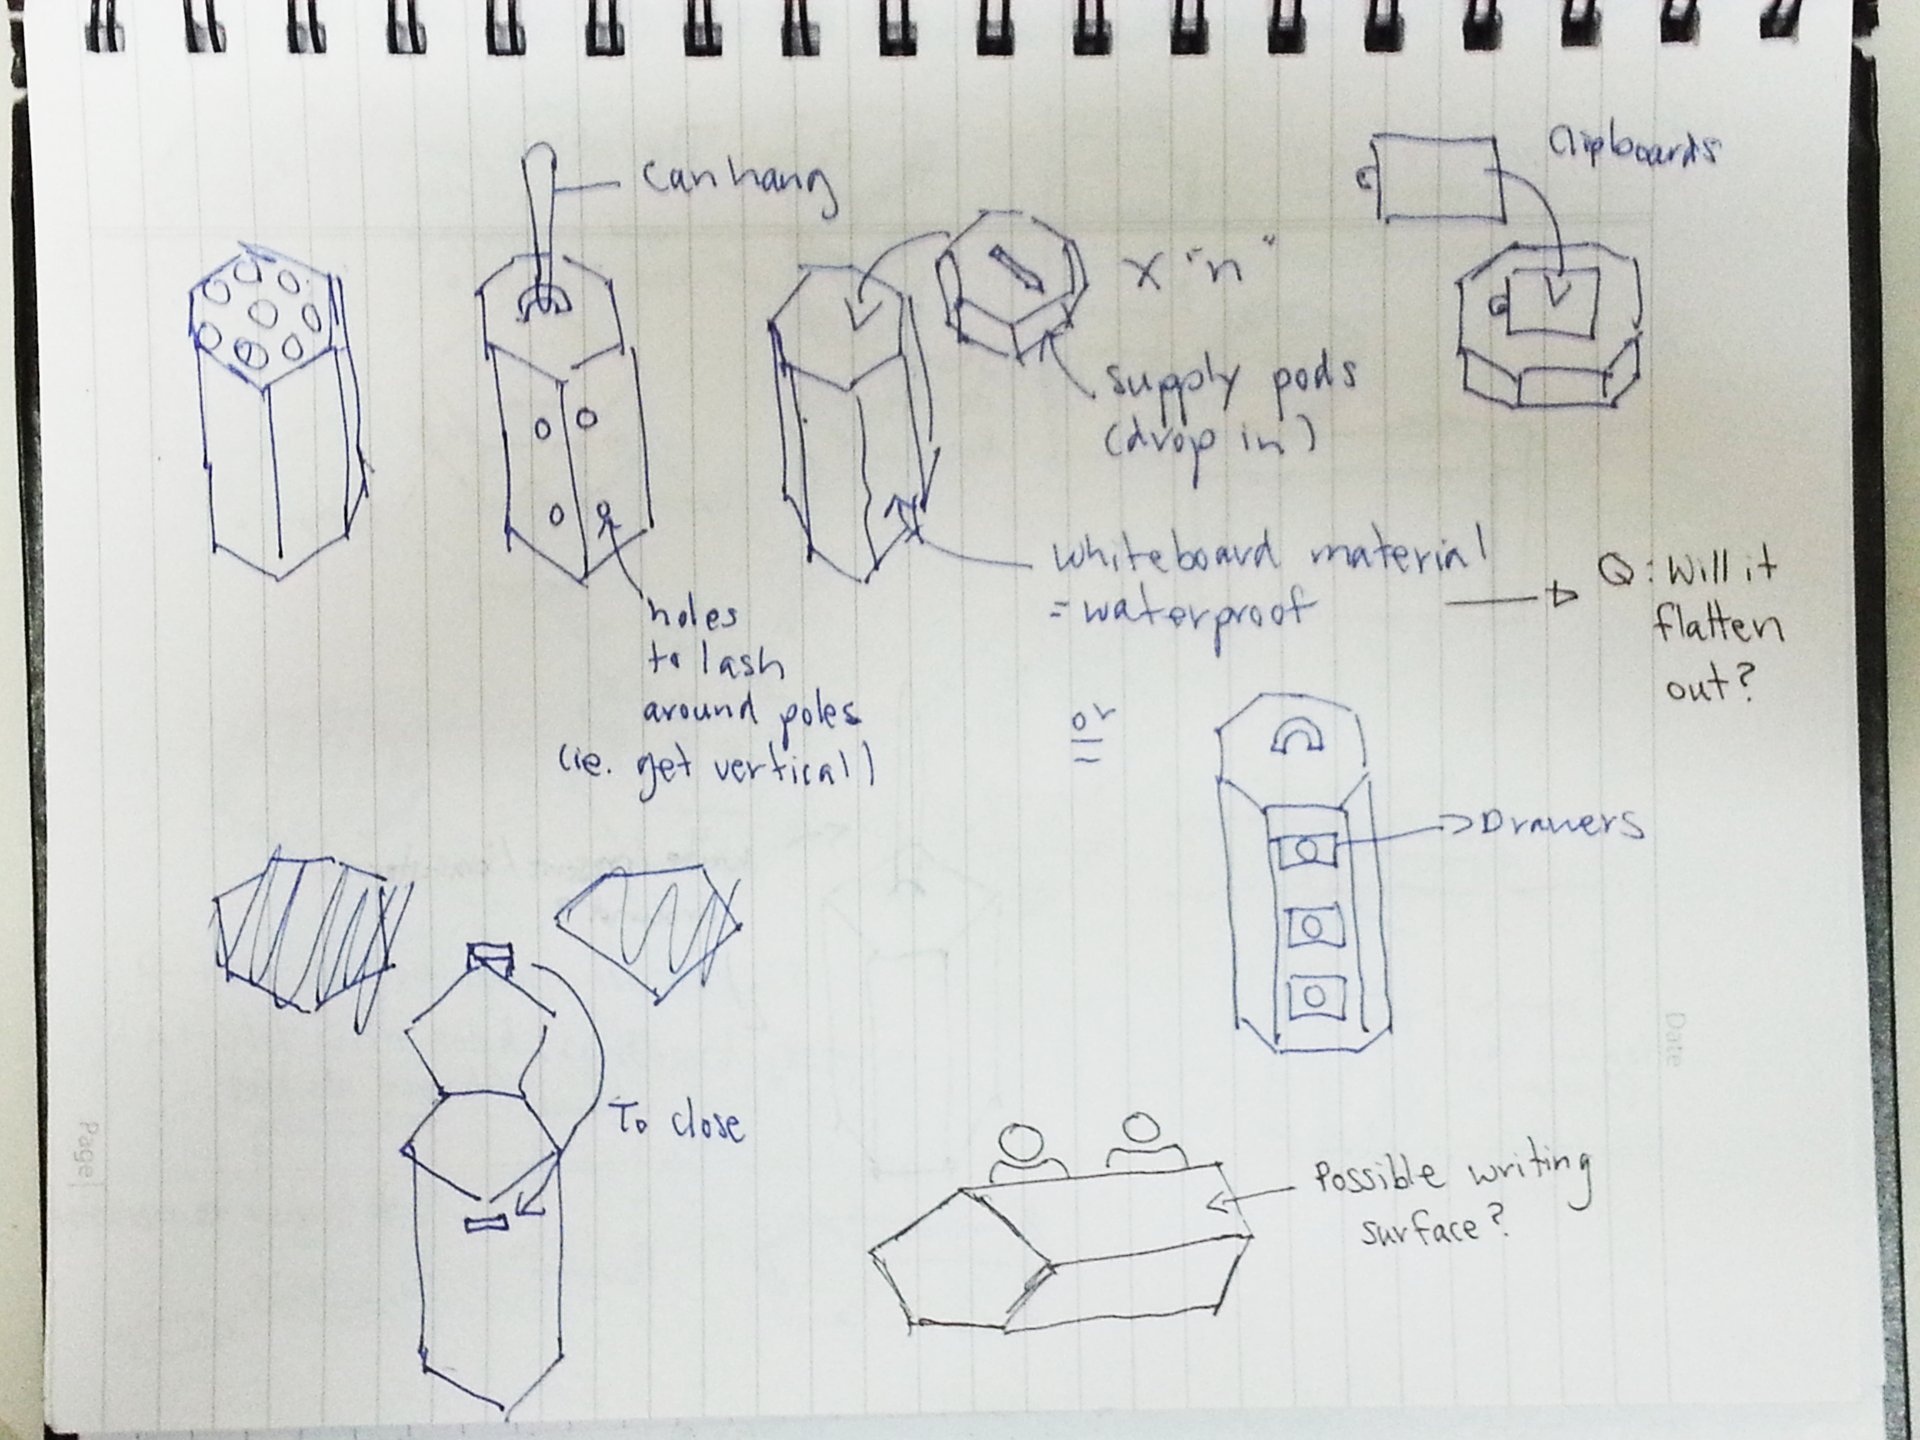 Can hang
Clipboards
x "n"
supply pods
(drop in)
whiteboard material
= waterproof
Q: Will it
flatten
out?
holes
to lash
around poles
(ie. get vertical)
or
Drawers
To close
Possible writing
surface?
Date
Page